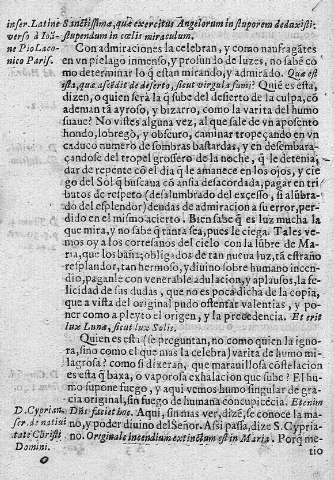 infer. Latine
verso à Ioã-
ne Pio Laco-
nico Paris.
Sanctissima, quæ exercitus Angelorum in stuporem deduxisti:
stupendum in cœlis miraculum.
Con admiraciones la celebran, y como naufragãtes
en vn pielago inmenso, y profundo de luzes, no sabẽ co
mo determinar lo q̃ estan mirando, y admirado. Quæ est
ista, quæ ascẽdit de deserto, sicut virgula fumi? Quiẽ es esta,
dizen, o quien será la q̃ sube del desierto de la culpa, cõ
ademan tã ayroso, y bizarro, como la varita del humo
suaue? No vistes alguna vez, al que sale de vn aposento
hondo, lobrego, y obscuro, caminar tropeçando en vn
caduco numero de sombras bastardas, y en desembara-
çandose del tropel grossero de la noche, q̃ le detenia,
dar de repente cõ el dia q̃ le amanece en los ojos, y cie
go del Sol q̃ buscaua cõ ansia desacordada, pagar en tri
butos de respeto (deslumbrado del excesso, si alũbra-
do del esplendor) deudas de admiracion a su error, per-
dido en el mismo acierto. Bien sabe q̃ es luz mucha la
que mira, y no sabe q̃ tanta sea, pues le ciega. Tales ve-
mos oy a los cortesanos del cielo con la lũbre de Ma-
ria, que los baña; obligados de tan nueua luz, tã estraño
resplandor, tan hermoso, y diuino sobre humano incen-
dio, paganle con venerable adulacion, y aplausos, la fe-
licidad de sus dudas, que no es poca dicha de la copia,
que a vista del original pudo ostentar valentias, y po-
ner como a pleyto el origen, y la precedencia. Et erit
lux Lunæ, sicut lux Solis.
Quien es esta (se preguntan, no como quien la igno-
ra, sino como el que mas la celebra) varita de humo mi-
lagrosa? como si dixeran, que marauillosa cõstelacion
es esta q̃ baxa, ò vaporosa exhalacion que sube? El hu-
mo supone fuego, y aqui vemos humo singular de gra-
cia original, sin fuego de humana concupicẽcia. Etenim
D. Cyprian.
ser. de natiui
tate Christi
Domini.
Dñs fuit hoc. Aqui, sin mas ver, dizẽ, se conoce la ma-
no, y poder diuino del Señor. Assi passa, dize S. Cypria-
no. Originale incendium extinctum est in Maria. Porq̃ me-
tio